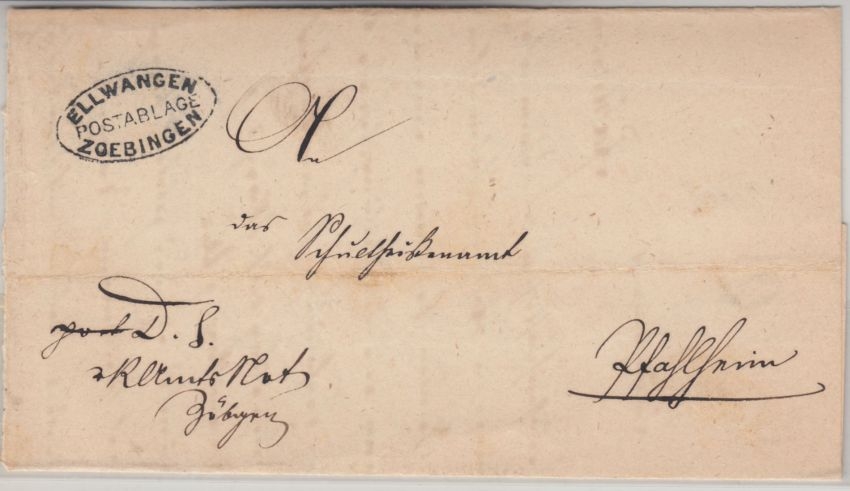 ELLWANGEN
POSTABLAGE
ZOEBINGEN
An
das
Schultheißenamt
Pfahlheim
D. S.
AmtsNot
Zöbgen